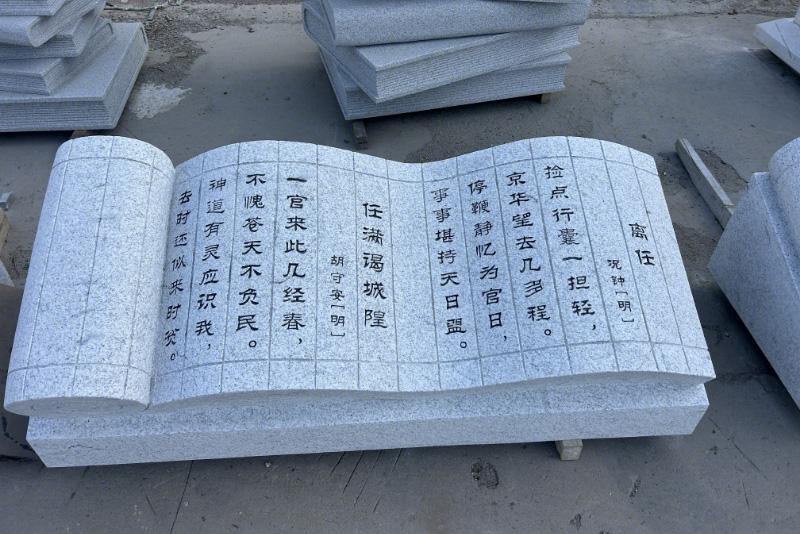 离任
况钟[明]
捡点行囊一担轻，
京华望去几多程。
停鞭静忆为官日，
事事堪持天日盟。
任满谒城隍
胡守安[明]
一官来此几经春，
不愧苍天不负民。
神道有灵应识我，
去时还似来时贫。